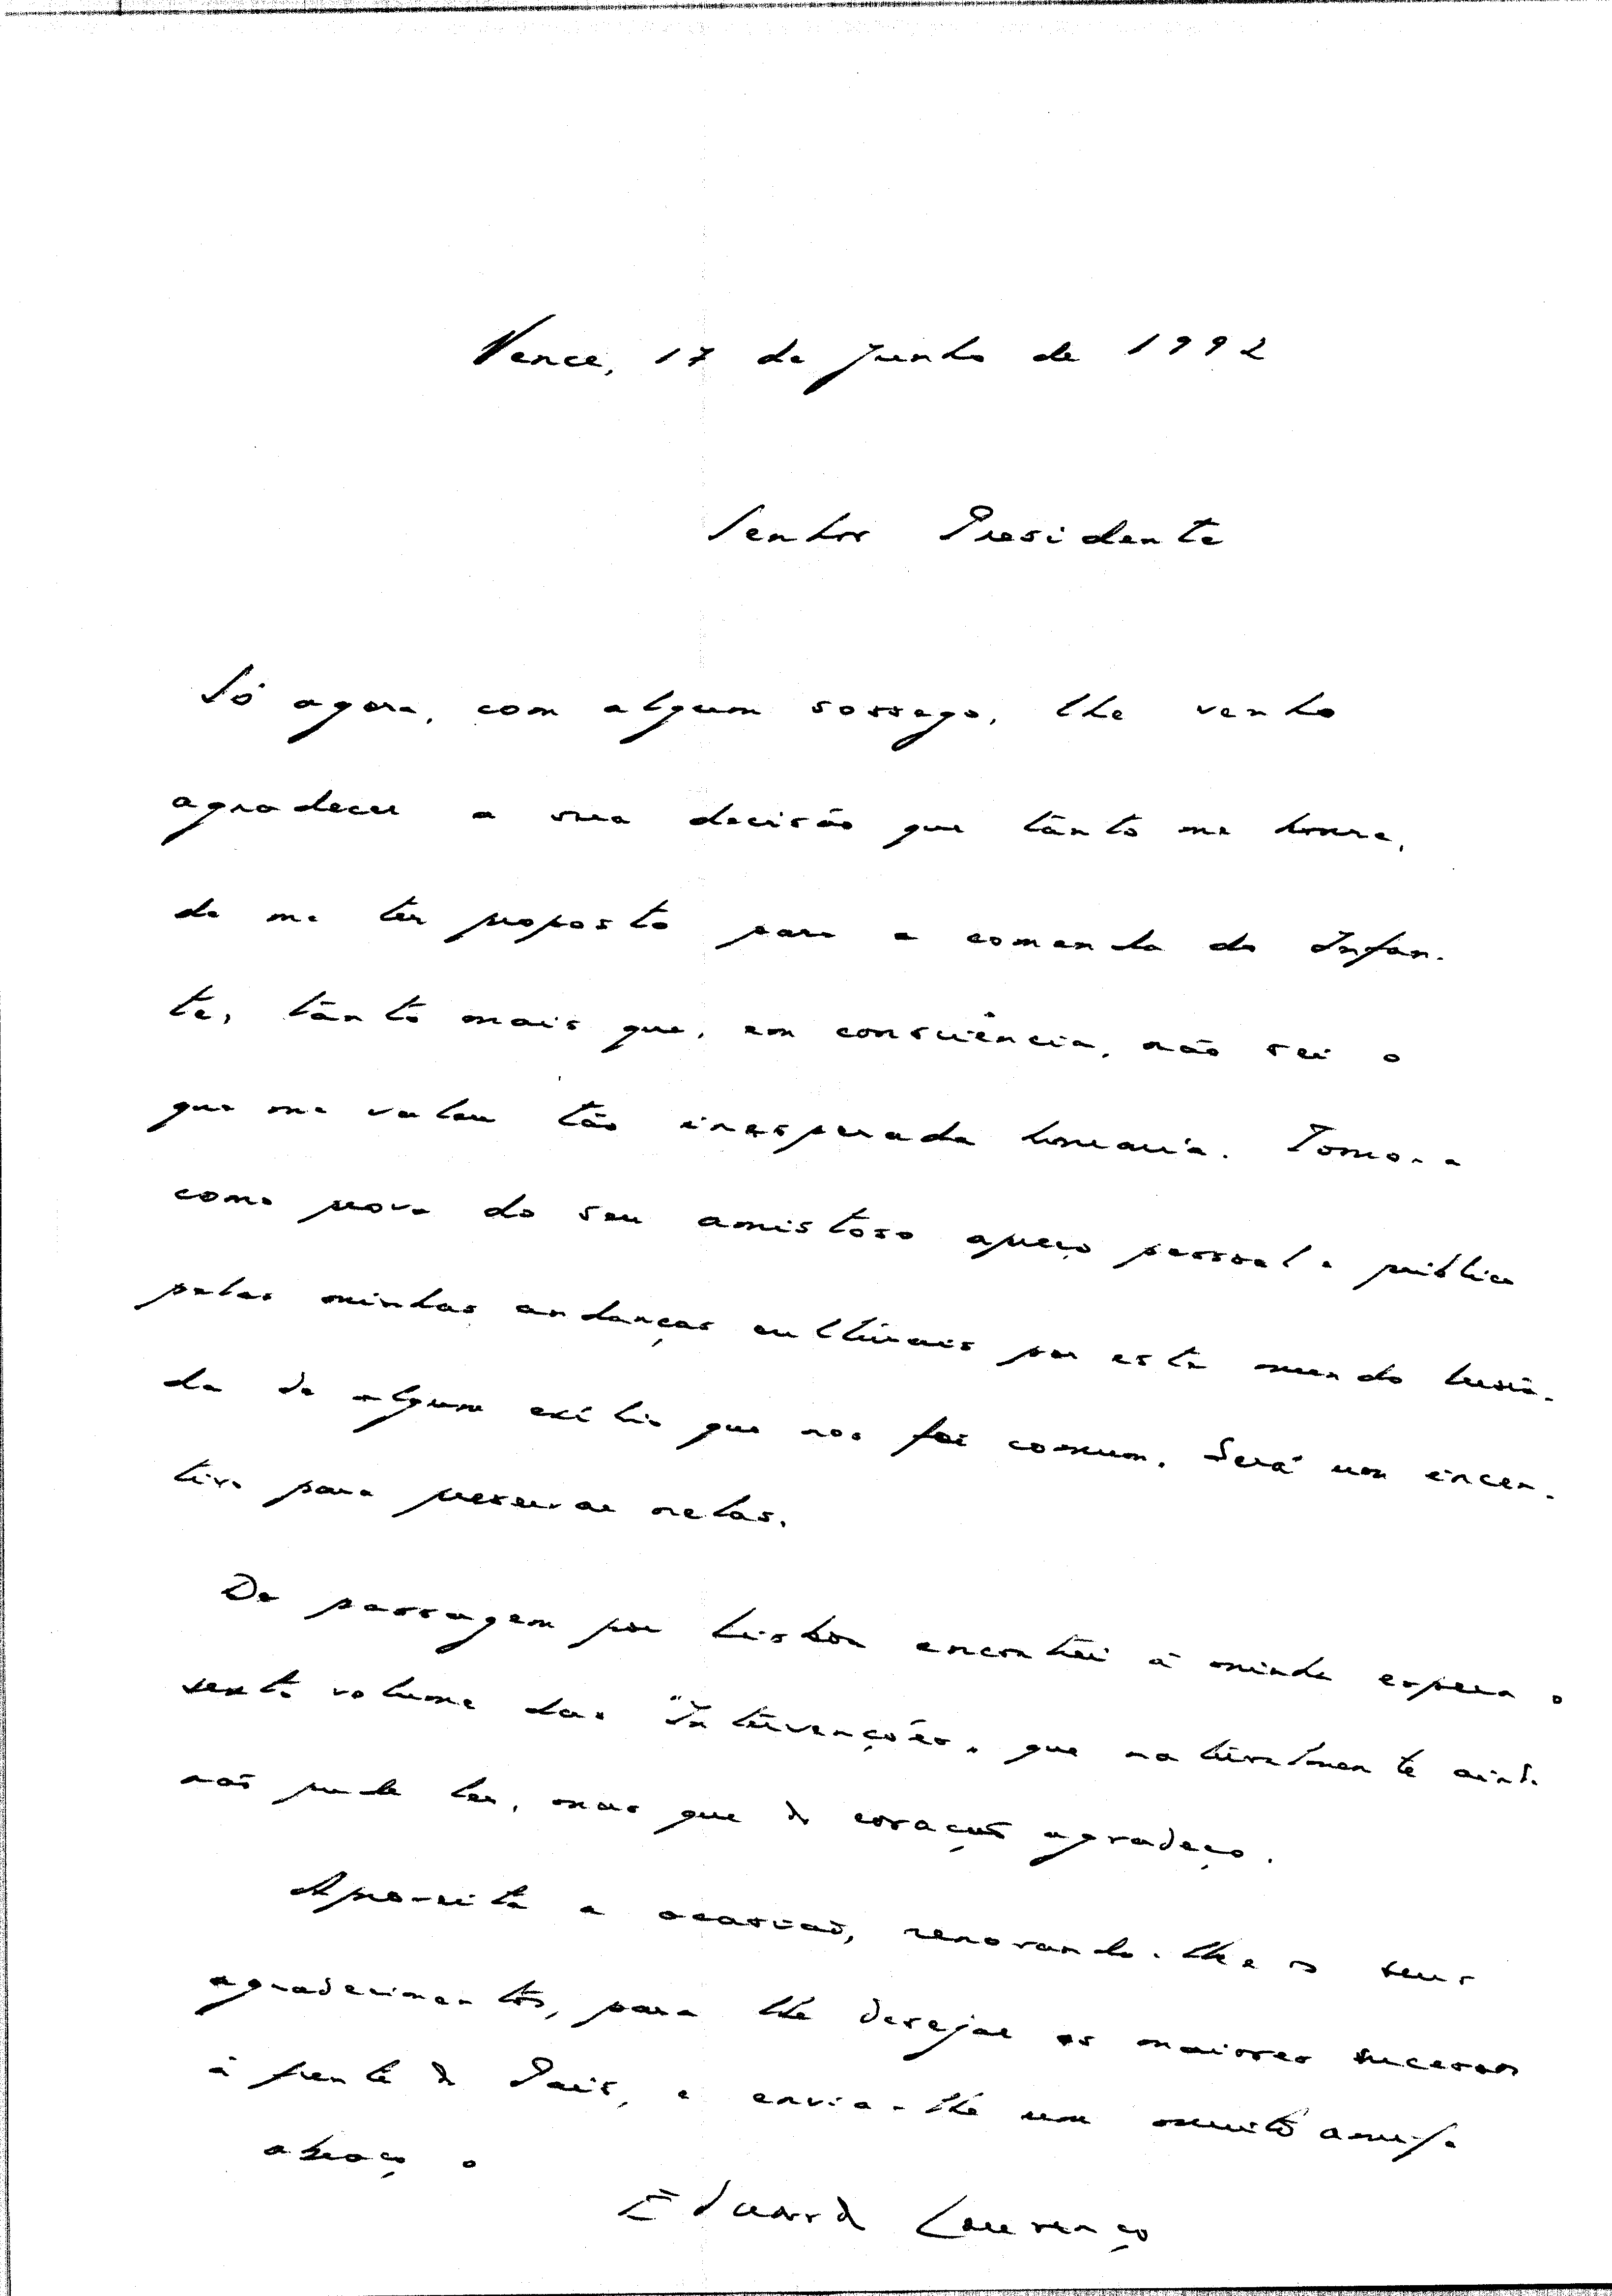 Vence, 17 de Junho de 1992
Senhor Presidente
Só agora, com algum sossego, lhe venho
agradecer a sua decisão que tânto me honra,
de me ter proposto para a comenda do Infan-
te, tânto mais que, em consciência, não sei o
que me valeu tão inesperada honraria. Tomo-a
como prova do seu amistoso apreço pessoal e público
pelas minhas andanças culturais por este mundo lusía-
da de algum exílio que nos foi comum. Será um incen-
tivo para preservar nelas.
De passagem por Lisboa encontrei à minha espera o
sexto volume das "Intervenções" que naturalmente ainda
não pude ler, mas que de coração agradeço.
Aproveita a ocasião, renovando-lhe os seus
agradecimentos, para lhe desejar os maiores sucessos
à frente do País, e envia-lhe um muito amigo
abraço o
Eduardo Lourenço